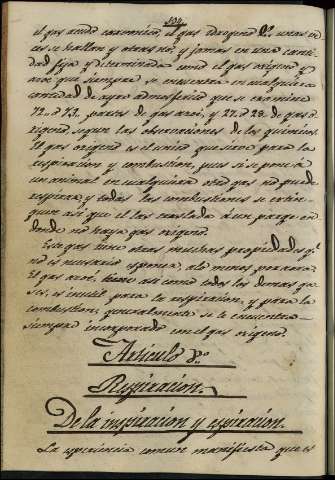 104.
el gas acido carvonico, el gas idrogeno &c. unas ve
ces se hallan y otras no, y jamas en una canti
dad fija y determinada como el gas oxigeno y
azoe, que siempre se encuentra en cualquiera
cantidad de ayre admosferico que se examine
72. á 73. partes de gas azoe, y 27. á 28. de gas o
xigeno, segun las observaciones de los quimicos.
El gas oxigeno es el unico que sirve para la
respiracion y combustion, pues si se pone á
un animal en cualquiera otro gas no puede
respirar y todas las combustiones se estin
guen asi que el las traslada á un parage en
donde no haya gas oxigeno.
Este gas tiene otras muchas propiedades qe
no es necesario esponer, alo menos por aora.
El gas azoe, tiene asi como todos los demas ga
ses, es inutil para la respiracion, y para la
combustion, generalmente se le encuentra
siempre incorporado con el gas oxigeno.
Articulo 8.º
Respiracion.
De la inspiracion y espiracion.
La esperiencia comun manifiesta que el